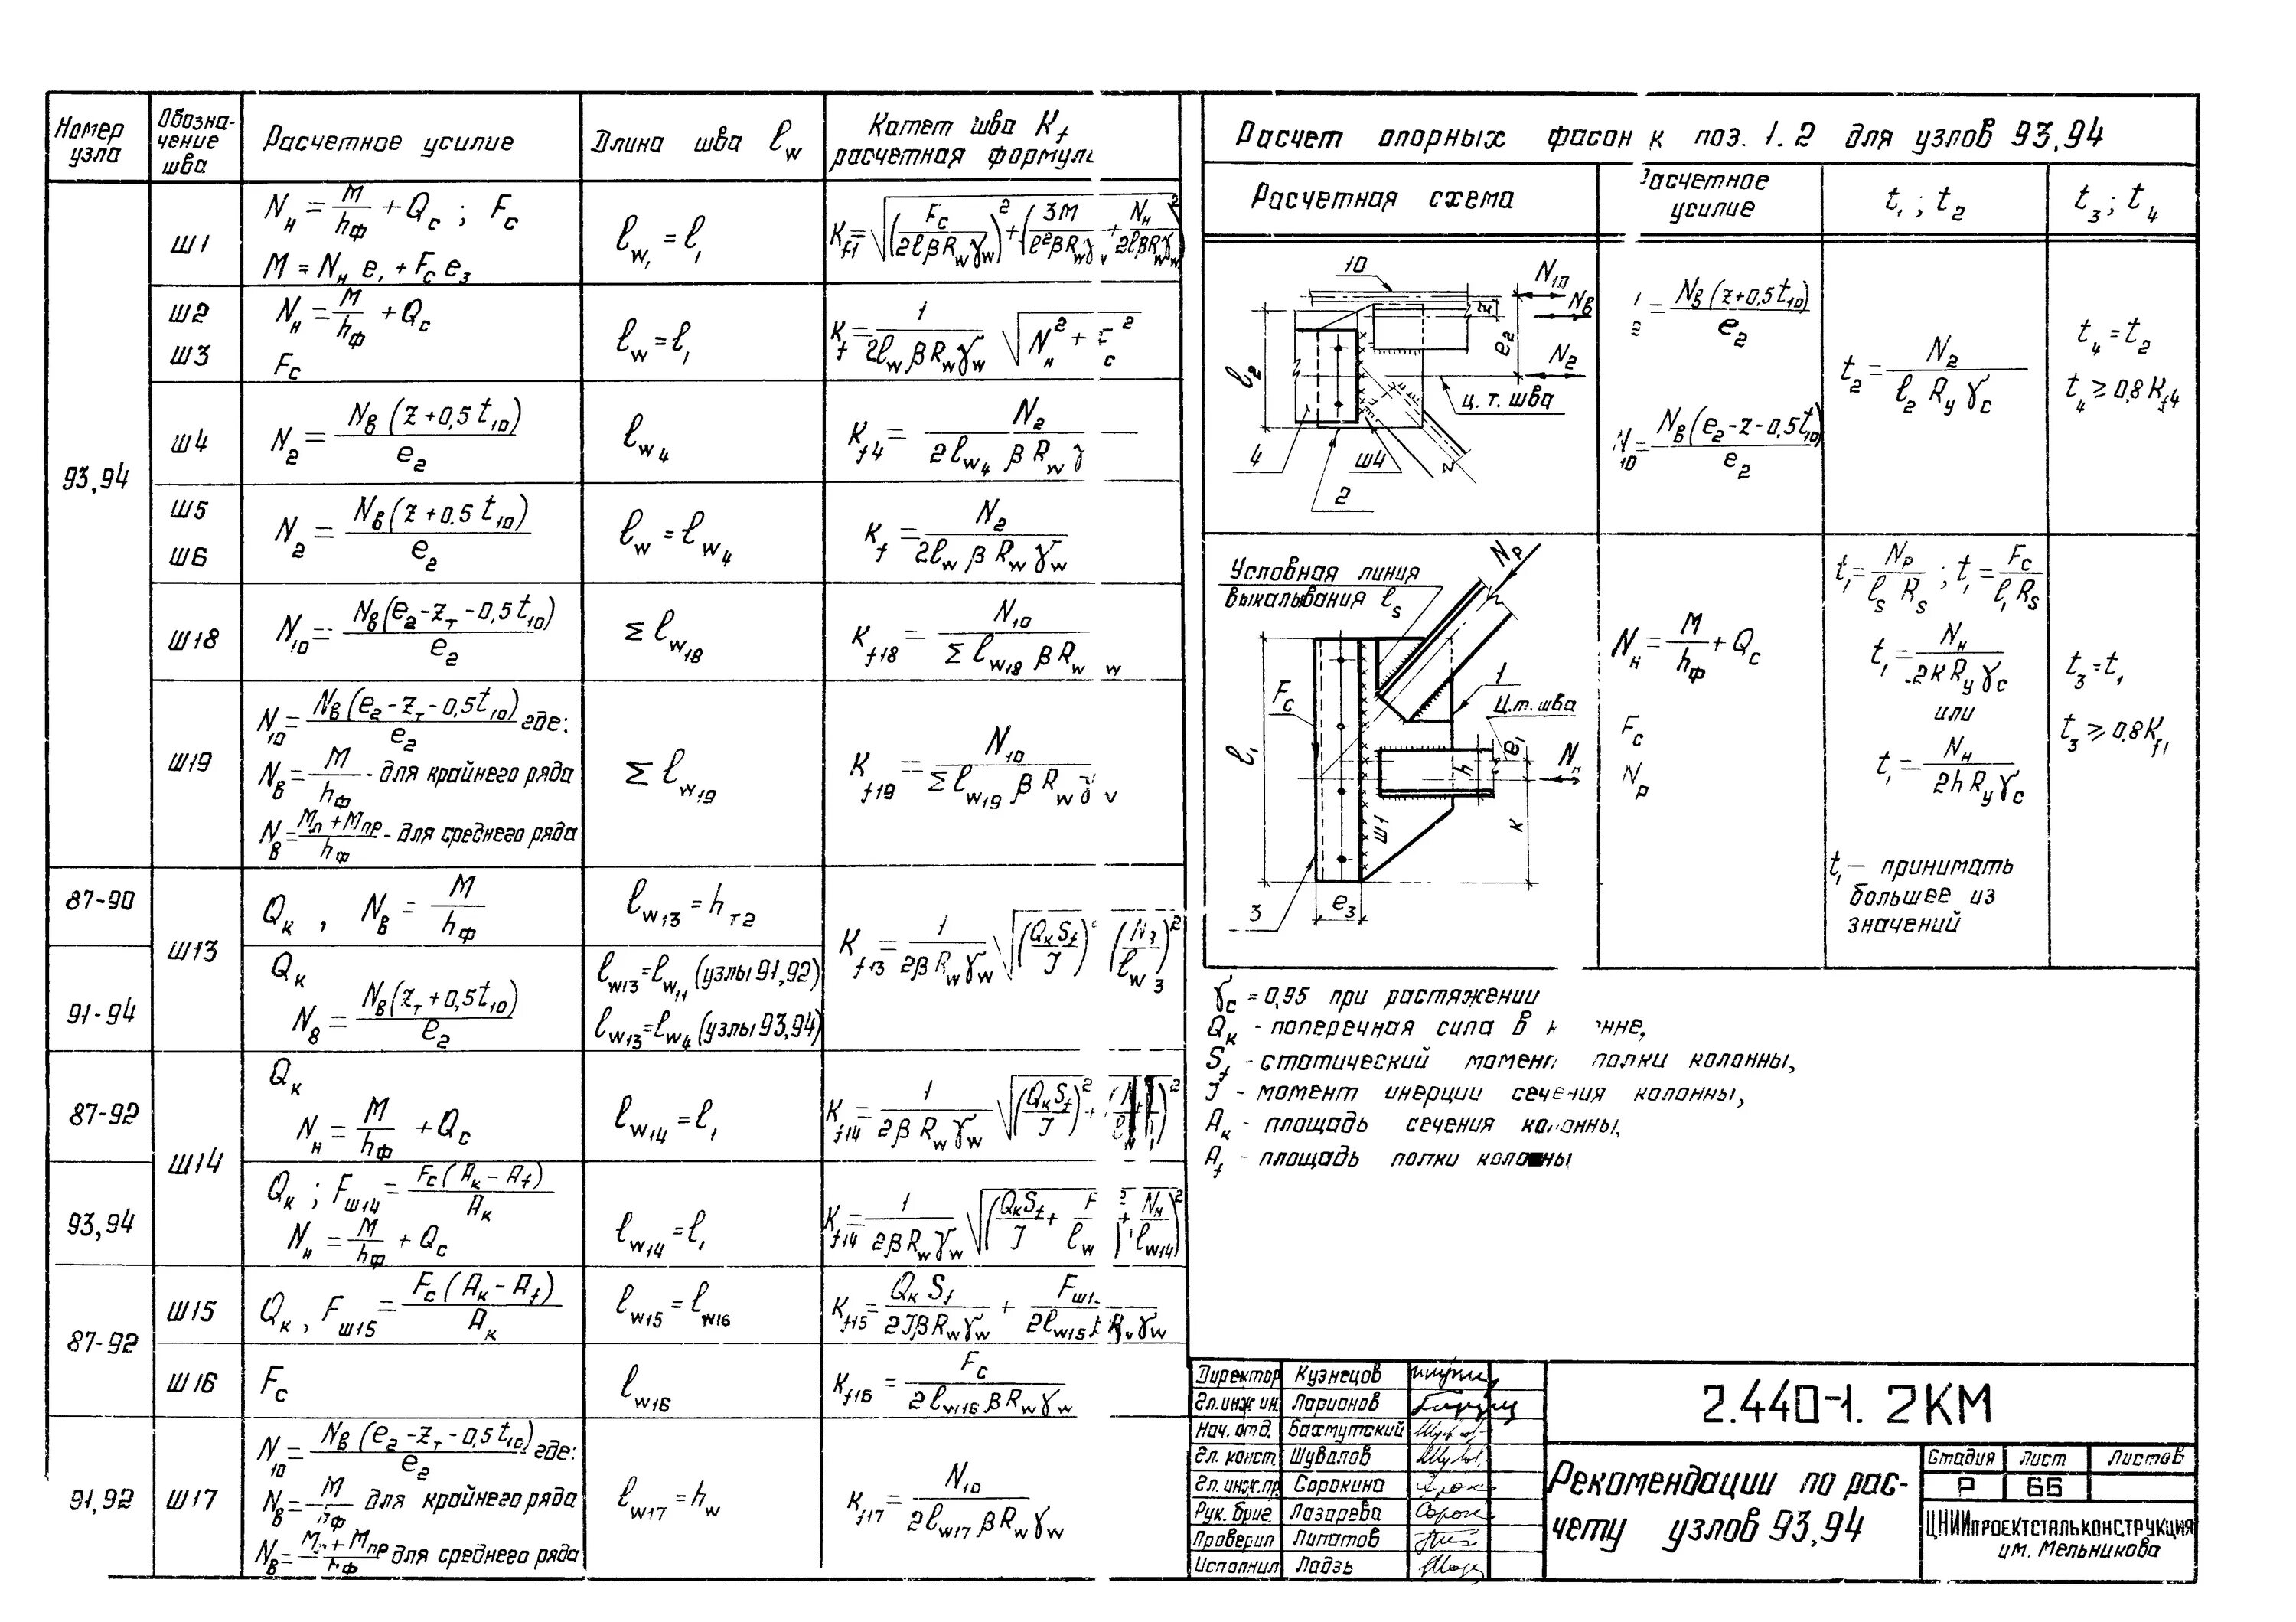 Номер узла
Обозна-чение шва
Расчетное усилие
Длина шва ℓw
Катет шва Kf
расчетная формул
93,94
Ш1
Nн = M/hф + Qс ; Fс
M = Nн e₁ + Fс e₃
ℓw₁ = ℓ₁
Kf1 = √((Fс/2ℓβRwγw)² + (3M/ℓ²βRwγ + Nн/2ℓβRwγw)²)
Ш2
Ш3
Nн = M/hф + Qс
Fс
ℓw = ℓ₁
Kf = 1/2ℓwβRwγw √(Nн² + с²)
Ш4
N₂ = Nв(z+0,5t₁₀)/e₂
ℓw4
Kf4 = N₂/2ℓw4 βRw
Ш5
Ш6
N₂ = Nв(z+0,5t₁₀)/e₂
ℓw = ℓw4
Kf = N₂/2ℓw βRwγw
Ш18
N₁₀ = Nв(e₂-zт-0,5t₁₀)/e₂
Σℓw18
Kf18 = N₁₀/Σℓw18 βRw w
Ш19
N₁₀ = Nв(e₂-zт-0,5t₁₀)/e₂ где:
Nв = M/hф - для крайнего ряда
Nв = Mл+Mпр/hф - для среднего ряда
Σℓw19
Kf19 = N₁₀/Σℓw19 βRwγ
87-90
Ш13
Qк , Nв = M/hф
ℓw13 = hт2
Kf13 = 1/2βRwγw √((QкSf/J)² (N/ℓw3)²)
91-94
Qк
N8 = Nв(zт+0,5t₁₀)/e₂
ℓw13 = ℓw11 (узлы 91,92)
ℓw13 = ℓw4 (узлы 93,94)
87-92
Ш14
Qк
Nн = M/hф + Qс
ℓw14 = ℓ₁
Kf14 = 1/2βRwγw √((QкSf/J)² + ( )²)
93,94
Qк ; Fш14 = Fс(Aк-Af)/Aк
Nн = M/hф + Qс
ℓw14 = ℓ₁
Kf14 = 1/2βRwγw √((QкSf/J + F/ℓw)² + (Nн/ℓw14)²)
87-92
Ш15
Qк , Fш15 = Fс(Aк-Af)/Aк
ℓw15 = ℓw16
Kf15 = QкSf/2JβRwγw + Fш1/2ℓw15 Rwγw
Ш16
Fс
ℓw16
Kf16 = Fс/2ℓw16 βRwγw
91,92
Ш17
N₁₀ = Nв(e₂-zт-0,5t₁₀)/e₂ где:
Nв = M/hф для крайнего ряда
Nв = Mл+Mпр/hф для среднего ряда
ℓw17 = hw
Kf17 = N₁₀/2ℓw17 βRwγw
Расчет опорных фасон к поз. 1. 2 для узлов 93,94
Расчетная схема
усилие
t₁ ; t₂
t₃ ; t₄
10
N₁₀
Nв
N₂
z
e₂
ℓ₂
ц. т. шва
4
ш4
2
= Nв(z+0,5t₁₀)/e₂
N₁₀ = Nв(e₂-z-0,5t₁₀)/e₂
t₂ = N₂/ℓ₂ Ry γс
t₄ = t₂
t₄ ≥ 0,8Kf4
Условная линия
выкалывания ℓs
Nр
1
Fс
Ц.т. шва
ℓ₁
h
e₁
Nн
к
ш1
3
e₃
Nн = M/hф + Qс
Fс
Nр
t₁ = Nр/ℓs Rs ; t₁ = Fс/ℓ₁ Rs
t₁ = Nн/2к Ry γс
или
t₁ = Nн/2h Ry γс
t₁ — принимать
большее из
значений
t₃ = t₁
t₃ ≥ 0,8Kf1
γс = 0,95 при растяжении
Qк - поперечная сила в к нне,
Sf - статический момент полки колонны,
J - момент инерции сечения колонны,
Aк - площадь сечения колонны,
Af - площадь полки колонны
Директор Кузнецов
Гл.инж ин. Ларионов
Нач. отд. Бахмутский
Гл. конст. Шувалов
Гл. инж.пр. Сорокина
Рук. бриг. Лазарева
Проверил Липатов
Исполнил Ладзь
2.440-1. 2КМ
Рекомендации по рас-
чету узлов 93,94
Стадия Лист Листов
Р 66
ЦНИИпроектстальконструкция
им. Мельникова